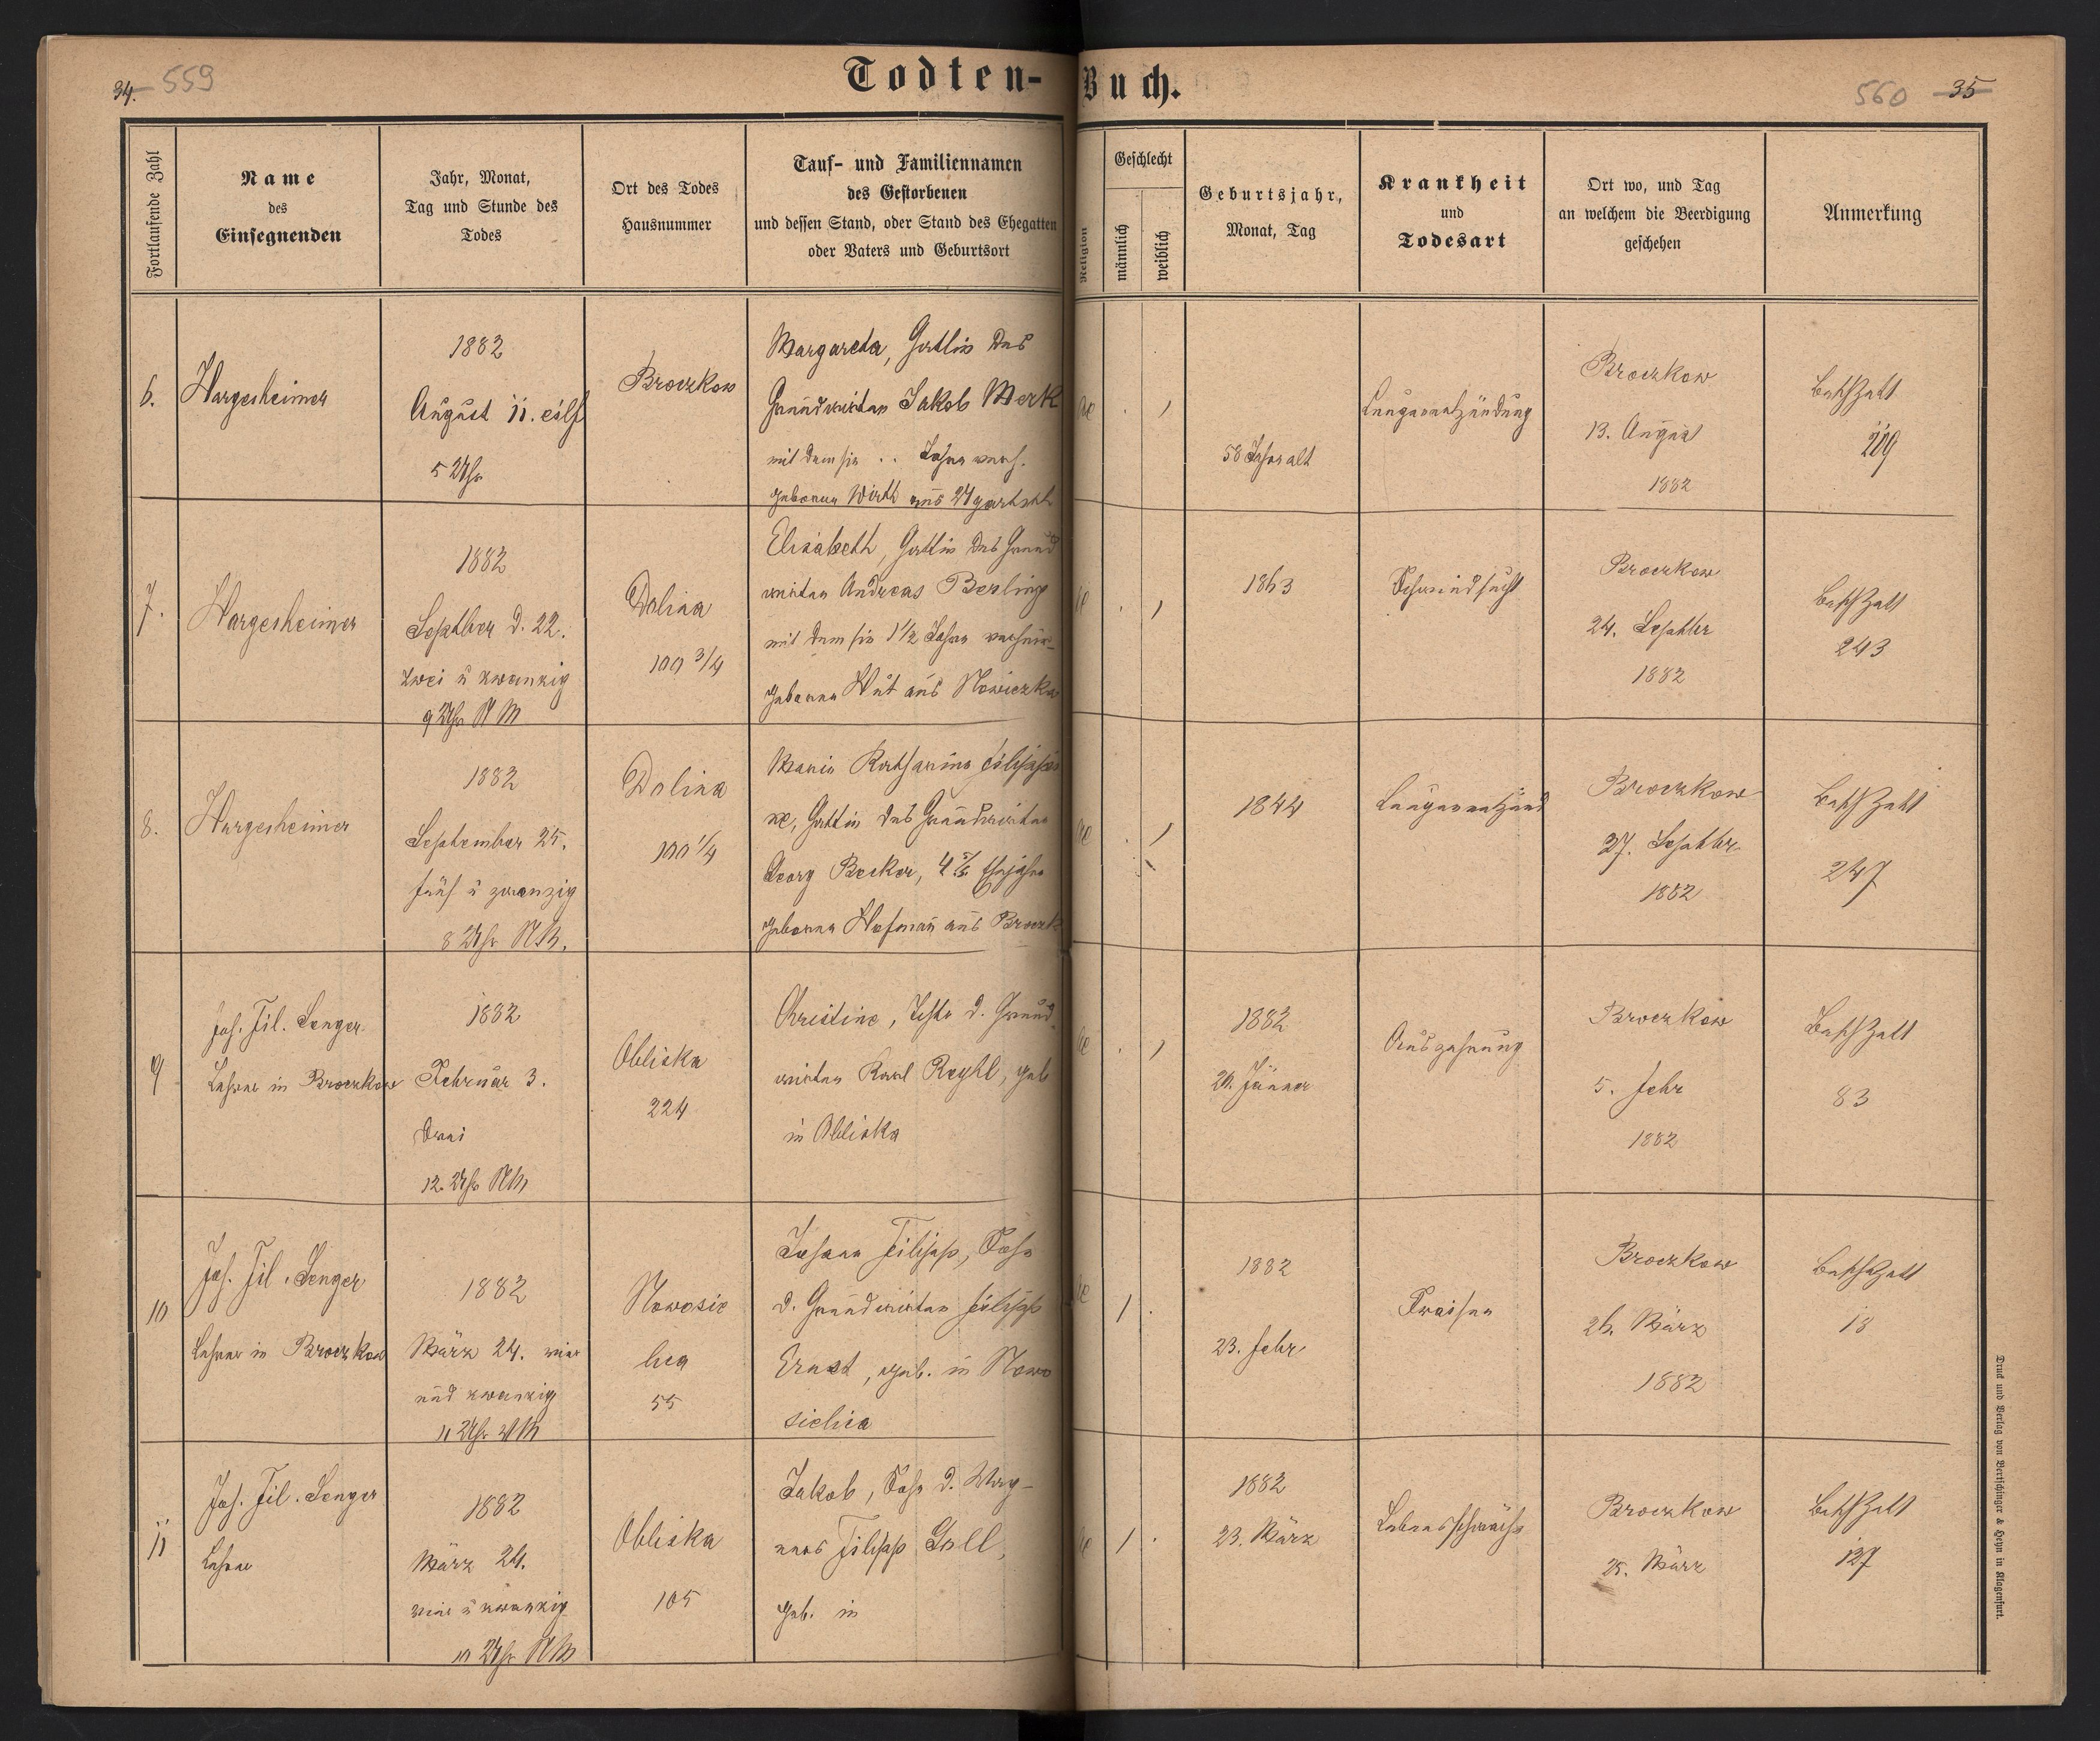 34. 559
Todten-Buch.
560 35
Fortlaufende Zahl
Name
des
Einsegnenden
Jahr, Monat,
Tag und Stunde des
Todes
Ort des Todes
Hausnummer
Tauf- und Familiennamen
des Gestorbenen
und dessen Stand, oder Stand des Ehegatten
oder Vaters und Geburtsort
Religion
Geschlecht
männlich
weiblich
Geburtsjahr,
Monat, Tag
Krankheit
und
Todesart
Ort wo, und Tag
an welchem die Beerdigung
geschehen
Anmerkung
6.
Hargesheimer
1882
August 11. eilf
5 Uhr
Broczkow
Margareta, Gattin des
Grundwirten Jakob Merk
mit dem sie .. Jahre verh.
geborene Wirth aus
58 Jahre alt
Lungenentzündung
Broczkow
13. August
1882
BethZall
219
7.
Hargesheimer
1882
Septbr d. 22.
zwei u zwanzig
9 Uhr NM
Dolina
100 3/4
Elisabeth, Gattin des Grund
wirten Andreas Berling
mit dem sie 1 1/2 Jahre
geborene Hut aus Nowiczka
1863
Schwindsucht
Broczkow
24. Septbr
1882
BethZall
243
8.
Hargesheimer
1882
September 25.
fünf u zwanzig
8 Uhr NM.
Dolina
100 1/4
Maria Katharina Filippi
ne, Gattin des Grundwirten
Georg Becker, Ehejahre
geborene Hofman aus Broczk
1844
Lungenentzünd
Broczkow
27. Septbr
1882
BethZall
247
9
Joh. Fil. Senger
Lehrer in Broczkow
1882
Februar 3.
drei
12. Uhr NM
Obliska
224
Christine, Tochtr d. Grund
wirten Karl Reyhl, geb
in Obliska
1882
20. Jänner
Auszehrung
Broczkow
5. Febr
1882
BethZall
83
10
Joh. Fil. Senger
Lehrer in Broczkow
1882
März 24. vier
und zwanzig
11 Uhr VM
Nowosie
lica
55
Johann Filipp, Sohn
d. Grundwirten Filipp
Ernst, geb. in Nowo
sielica
1882
23. Febr
Fraisen
Broczkow
26. März
1882
BethZall
13
11
Joh. Fil. Senger
Lehrer
1882
März 24.
vier u zwanzig
10 Uhr NM
Obliska
105
Jakob, Sohn d. Wag-
ners Filipp Goll,
geb. in
1882
23. März
Lebensschwäche
Broczkow
25. März
BethZall
127
Druck und Verlag von Bertschinger & Heyn in Klagenfurt.